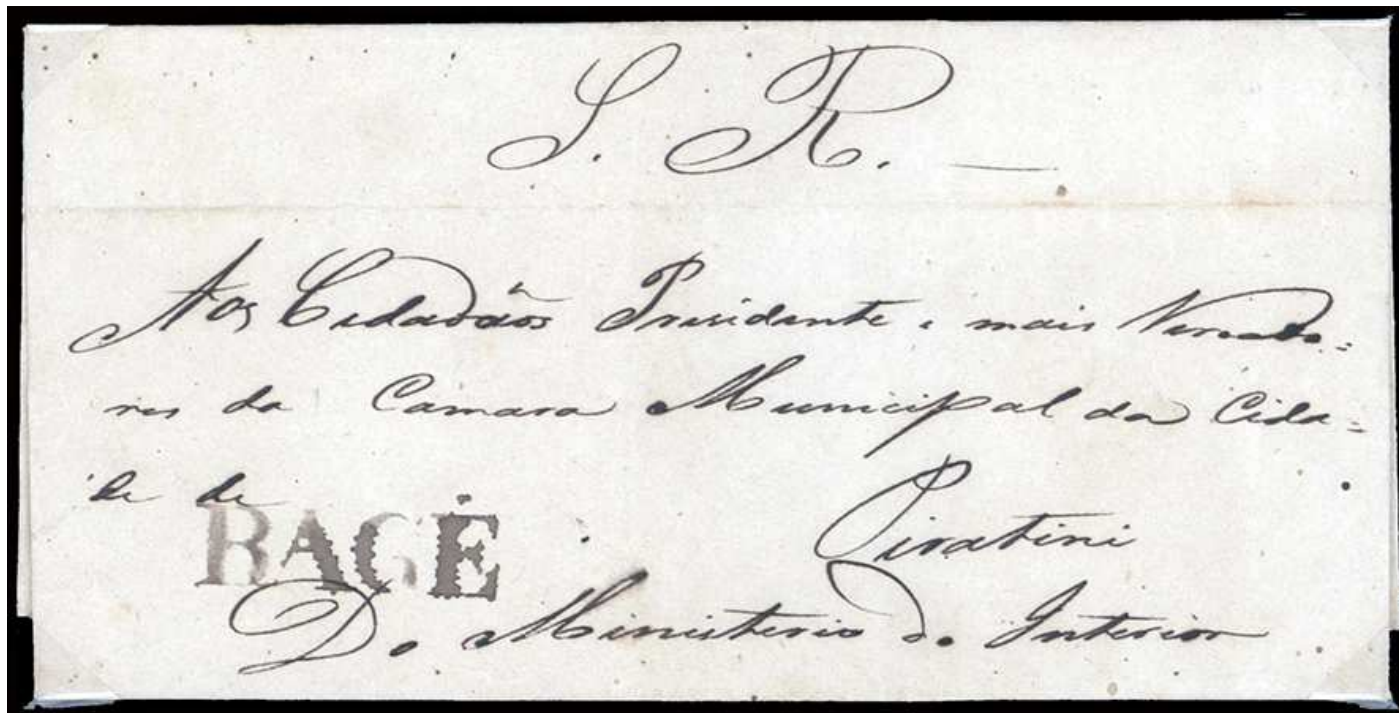 S. R. —
Aos Cidadãos Presidente e mais Vereado=
res da Camara Municipal da Cida=
de de
Piratini
BAGÉ
Do Ministerio do Interior